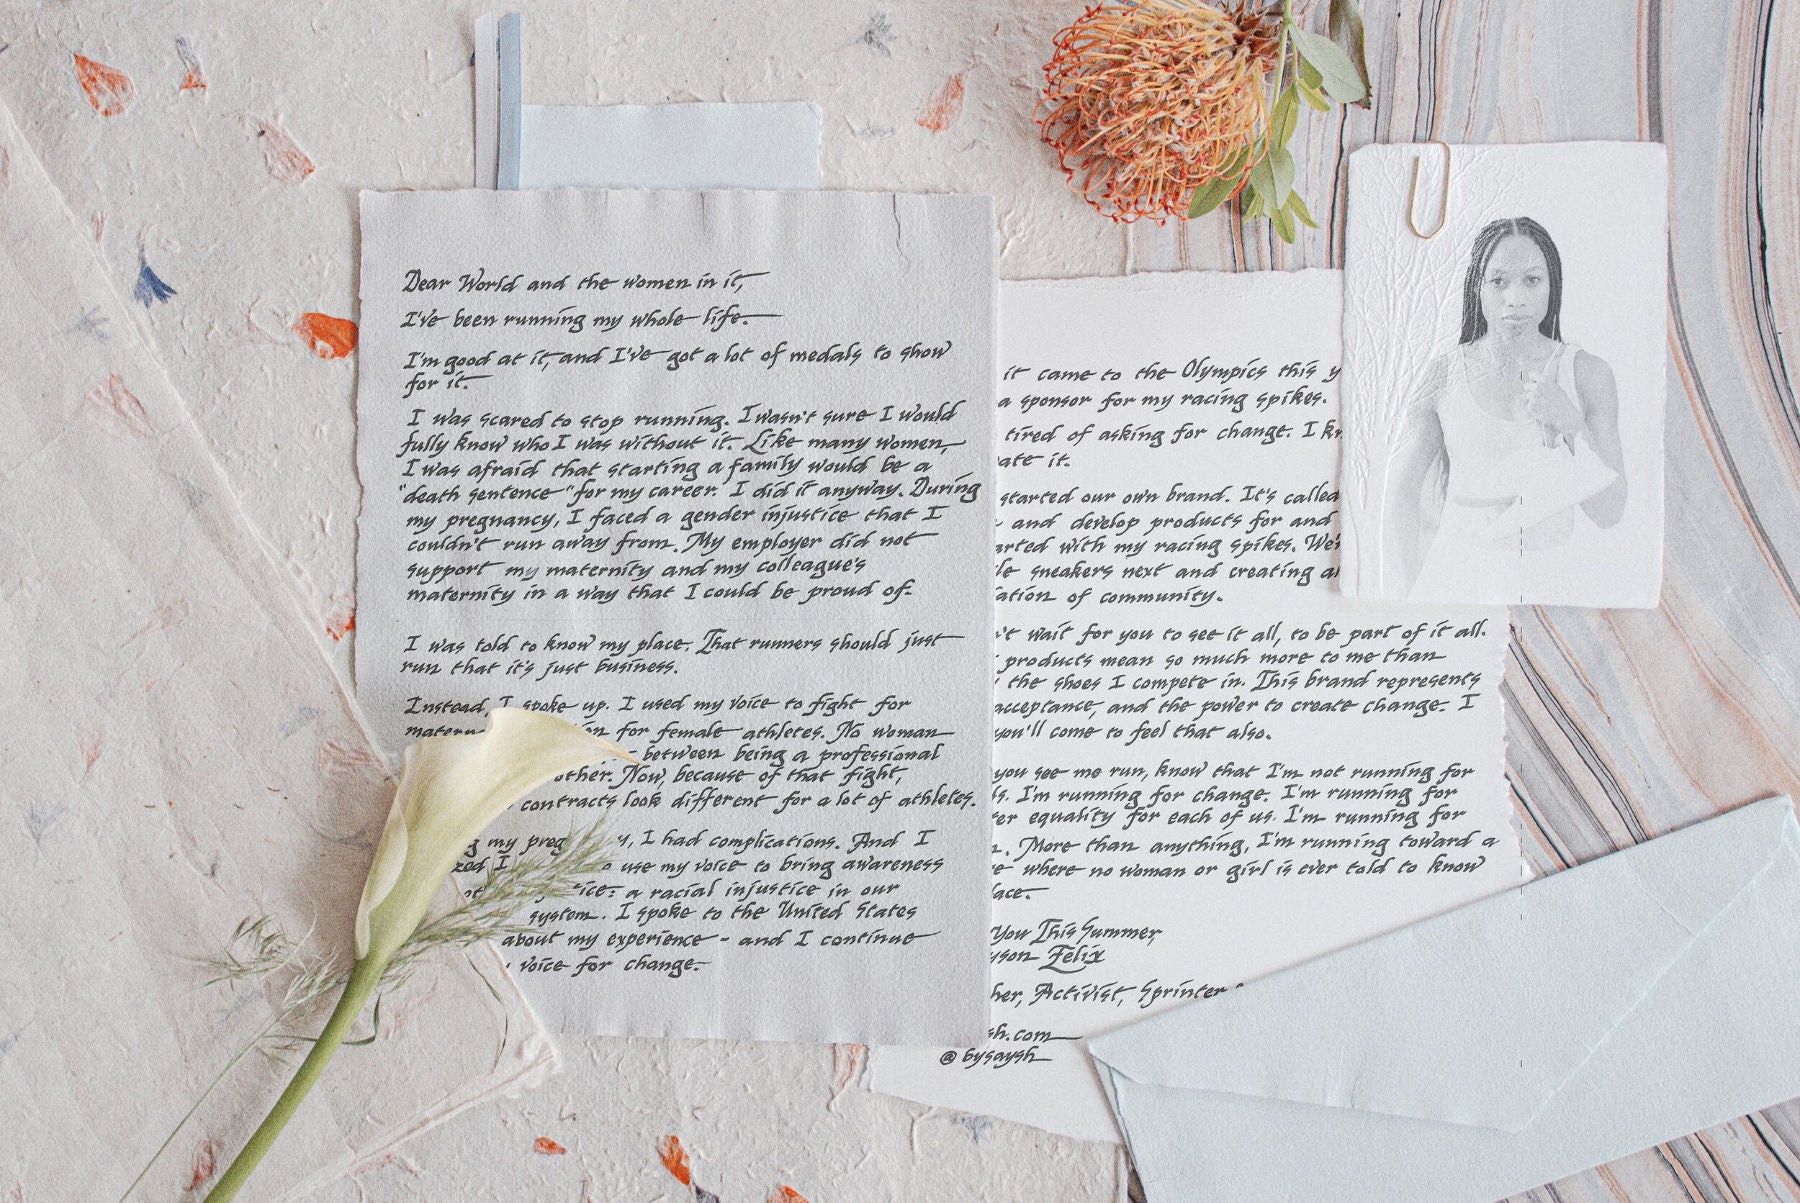 Dear World and the women in it,
I've been running my whole life.
I'm good at it, and I've got a lot of medals to show
for it.
I was scared to stop running. I wasn't sure I would
fully know who I was without it. Like many women,
I was afraid that starting a family would be a
"death sentence" for my career. I did it anyway. During
my pregnancy, I faced a gender injustice that I
couldn't run away from. My employer did not
support my maternity and my colleague's
maternity in a way that I could be proud of.
I was told to know my place. That runners should just
run that it's just business.
Instead, I spoke up. I used my voice to fight for
for female athletes. No woman
between being a professional
Now, because of that fight,
contracts look different for a lot of athletes.
my I had complications. And I
use my voice to bring awareness
a racial injustice in our
system. I spoke to the United States
about my experience - and I continue
voice for change.
it came to the Olympics this
a sponsor for my racing spikes.
tired of asking for change. I
it.
started our own brand. It's called
and develop products for and
with my racing spikes.
sneakers next and creating
of community.
wait for you to see it all, to be part of it all.
products mean so much more to me than
the shoes I compete in. This brand represents
acceptance, and the power to create change. I
you'll come to feel that also.
you see me run, know that I'm not running for
I'm running for change. I'm running for
equality for each of us. I'm running for
More than anything, I'm running toward a
where no woman or girl is ever told to know
You This Summer,
Felix
Activist, Sprinter
sh.com
@bysaysh